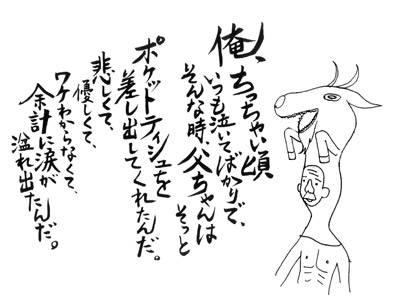 俺、ちっちゃい頃
いつも泣いてばかりで、
そんな時、父ちゃんは
そっと
ポケットティシュを
差し出してくれたんだ。
悲しくて、
優しくて、
ワケわからなくて、
余計に涙が
溢れ出たんだ。